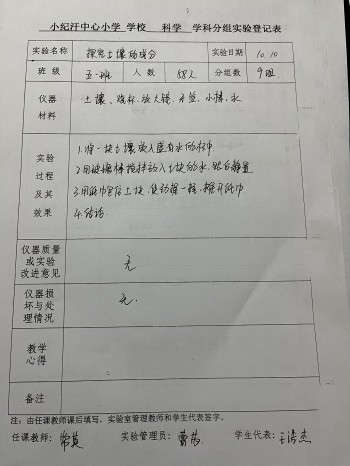 小纪汗中心小学 学校 科学 学科分组实验登记表
实验名称 探究土壤的成分 实验日期 10.10
班级 五一班 人数 58人 分组数 9组
仪器材料 土壤、烧杯、放大镜、 小棒、水
实验过程及其效果
1.将一块土壤放入盛有水的杯中
2.用玻璃棒搅拌放入土块的水,然后静置
3.用纸巾包住土块,使劲握一握,打开纸巾
4.结论
仪器质量或实验改进意见 无
仪器损坏与处理情况 无.
教学心得
备注
注:由任课教师课后填写,实验室管理教师和学生代表签字。
任课教师: 实验管理员: 学生代表: